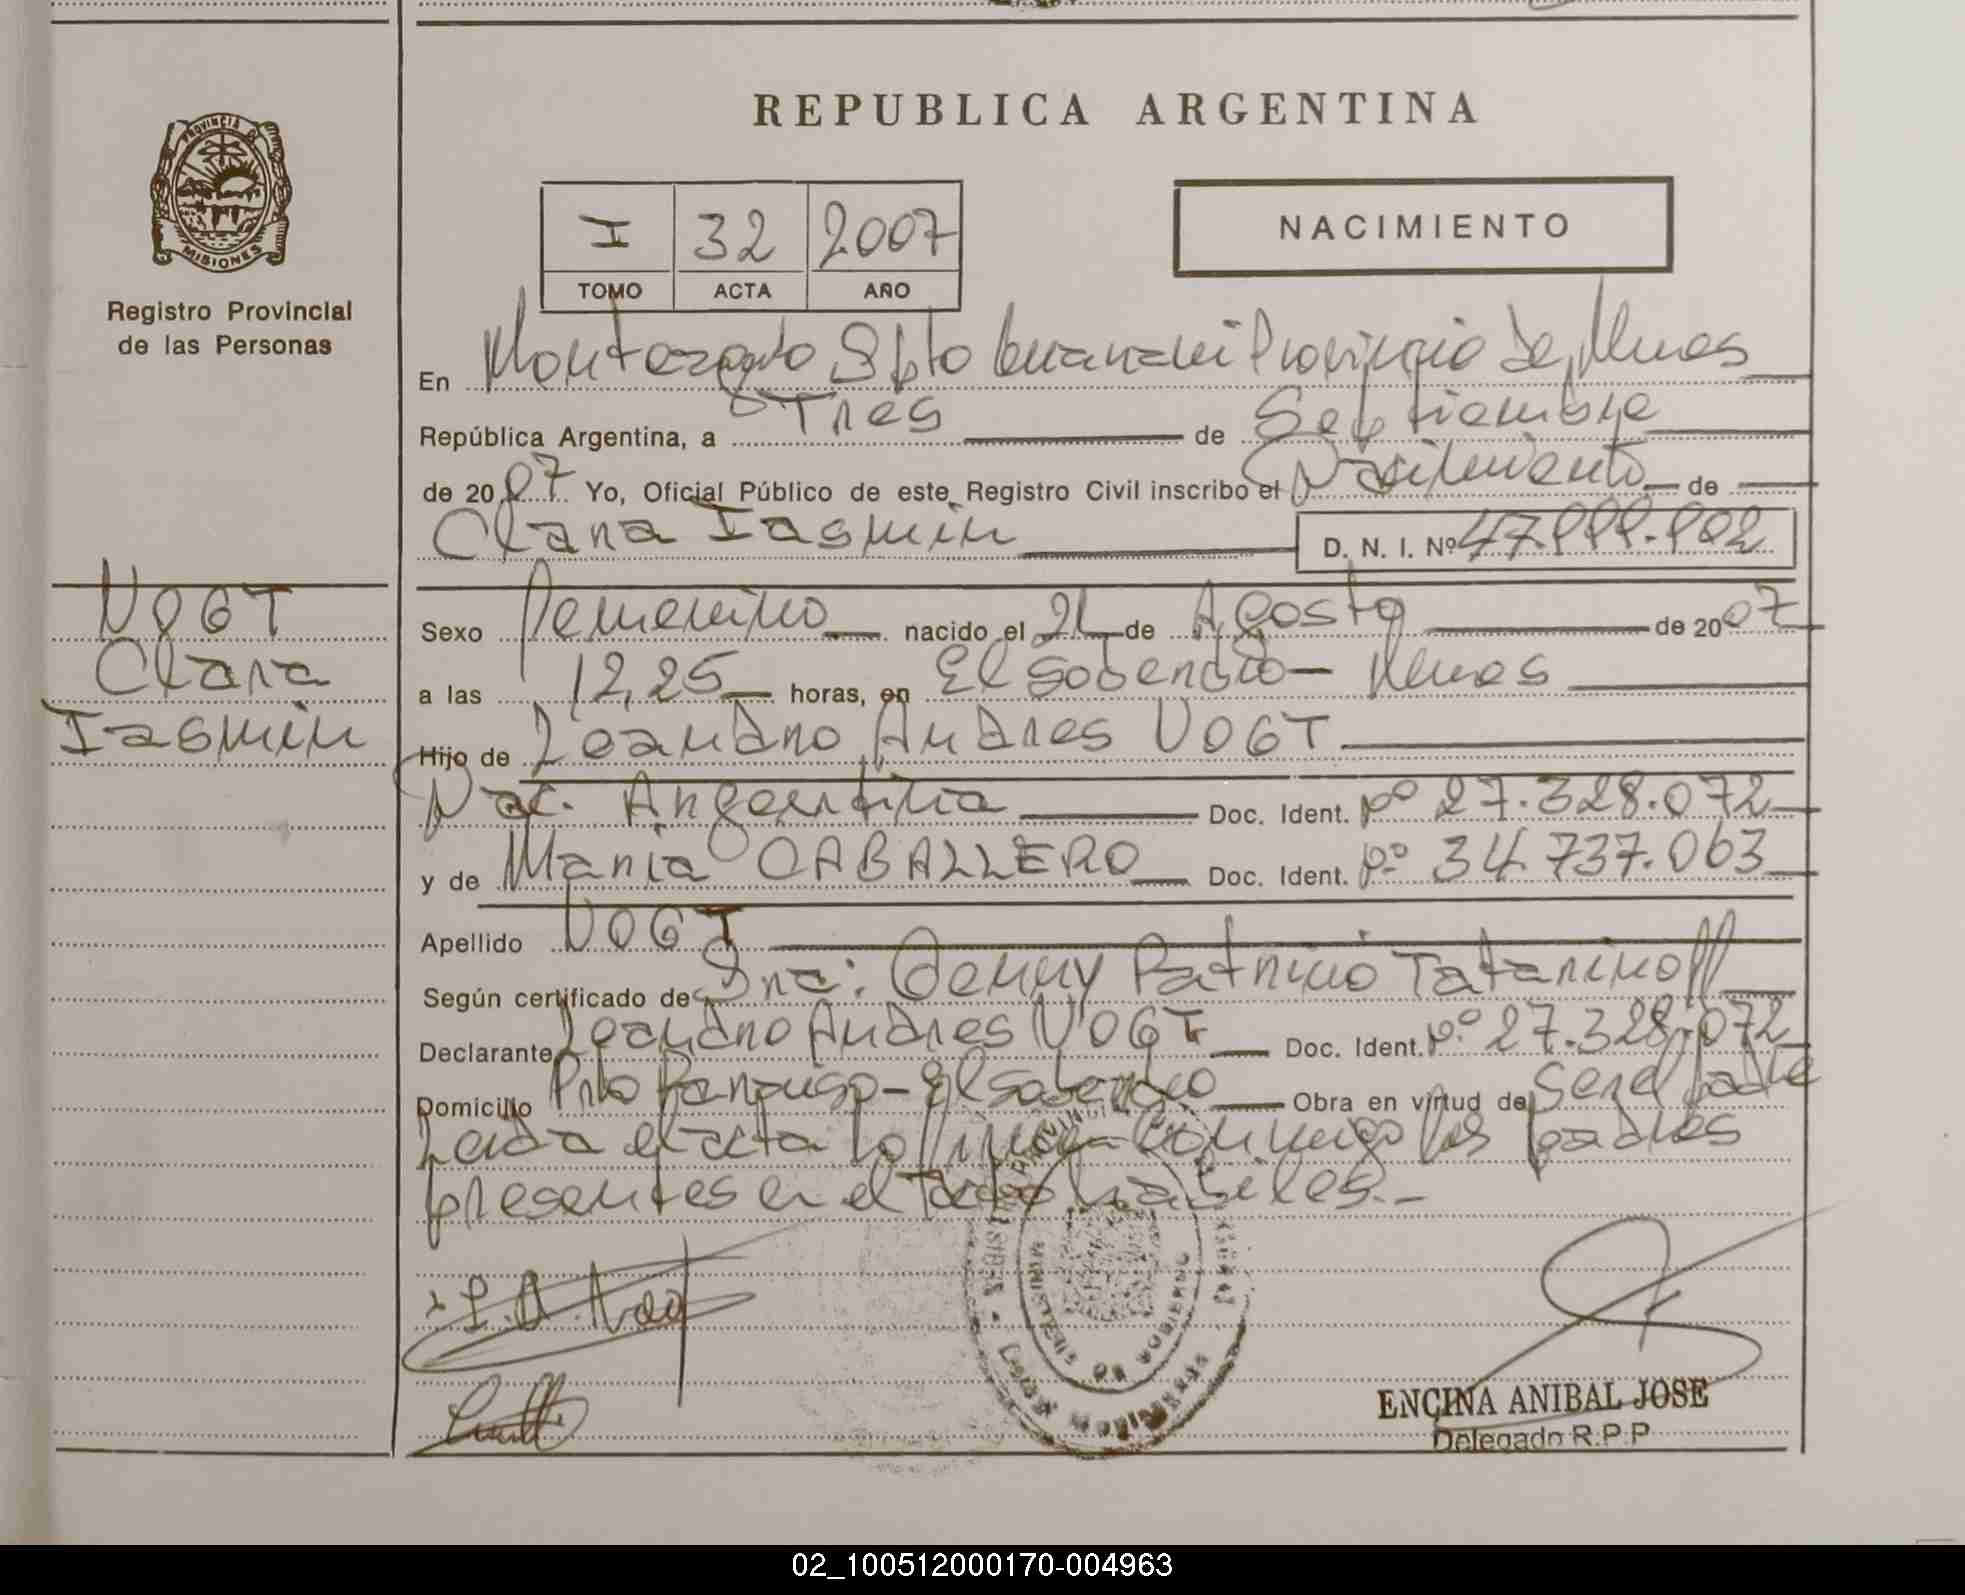 REPUBLICA ARGENTINA
PROVINCIA DE
MISIONES
Registro Provincial
de las Personas
I 32 2007
TOMO ACTA AÑO
NACIMIENTO
En Dpto Guaraní Provincia de Mnes
República Argentina, a Tres de Septiembre
de 2007 Yo, Oficial Público de este Registro Civil inscribo el Nacimiento de
Clara Iasmin D. N. I. Nº
VOGT
Clara
Iasmin
Sexo Femenino nacido el 21 de Agosto de 2007
a las 12,25 horas, en El Soberbio - Mnes
Hijo de Leandro Andres VOGT
Nac. Argentina Doc. Ident. Nº 27.328.072
y de Maria CABALLERO Doc. Ident. Nº 34.737.063
Apellido VOGT
Según certificado de Dra: Patricia
Declarante Leandro Andres VOGT Doc. Ident. Nº 27.328.072
Domicilio - El Soberbio Obra en virtud de Ser el padre
Leida el acta la firman conmigo los padres
presentes en el
MINISTERIO DE GOBIERNO
ENCINA ANIBAL JOSE
Delegado R.P.P
02_100512000170-004963